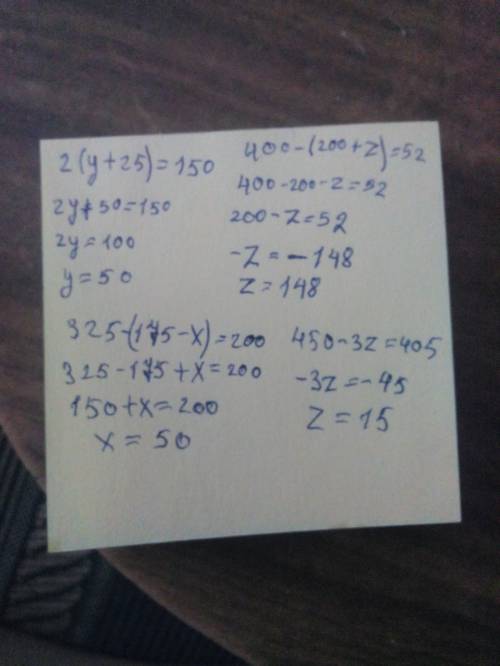 2(y+25)=150
2y+50=150
2y=100
y=50
400-(200+z)=52
400-200-z=52
200-z=52
-z=-148
z=148
325-(175-x)=200
325-175+x=200
150+x=200
x=50
450-3z=405
-3z=-45
z=15